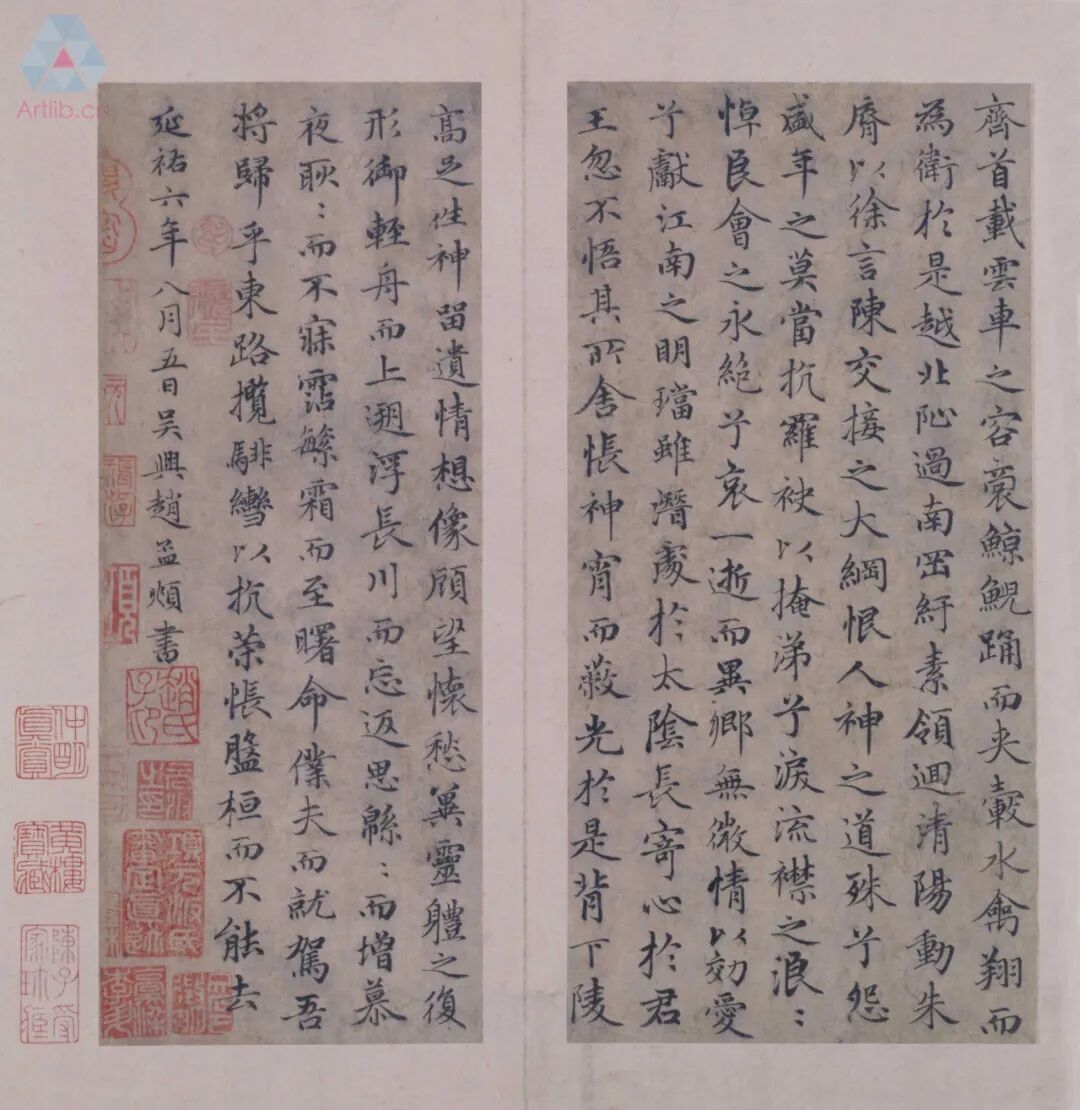 齊首載雲車之容裔鯨鯢踊而夾轂水禽翔而
為衛於是越北沚過南岡紆素領迴清陽動朱
脣以徐言陳交接之大綱恨人神之道殊兮怨
盛年之莫當抗羅袂以掩涕兮淚流襟之浪〻
悼良會之永絕兮哀一逝而異鄉無微情以効愛
兮獻江南之明璫雖潛處於太陰長寄心於君
王忽不悟其所舍悵神宵而蔽光於是背下陵
高足往神留遺情想像顧望懷愁冀靈體之復
形御輕舟而上遡浮長川而忘返思緜〻而增慕
夜耿〻而不寐霑繁霜而至曙命僕夫而就駕吾
將歸乎東路攬騑轡以抗策悵盤桓而不能去
延祐六年八月五日吳興趙孟頫書
Artlib.cn